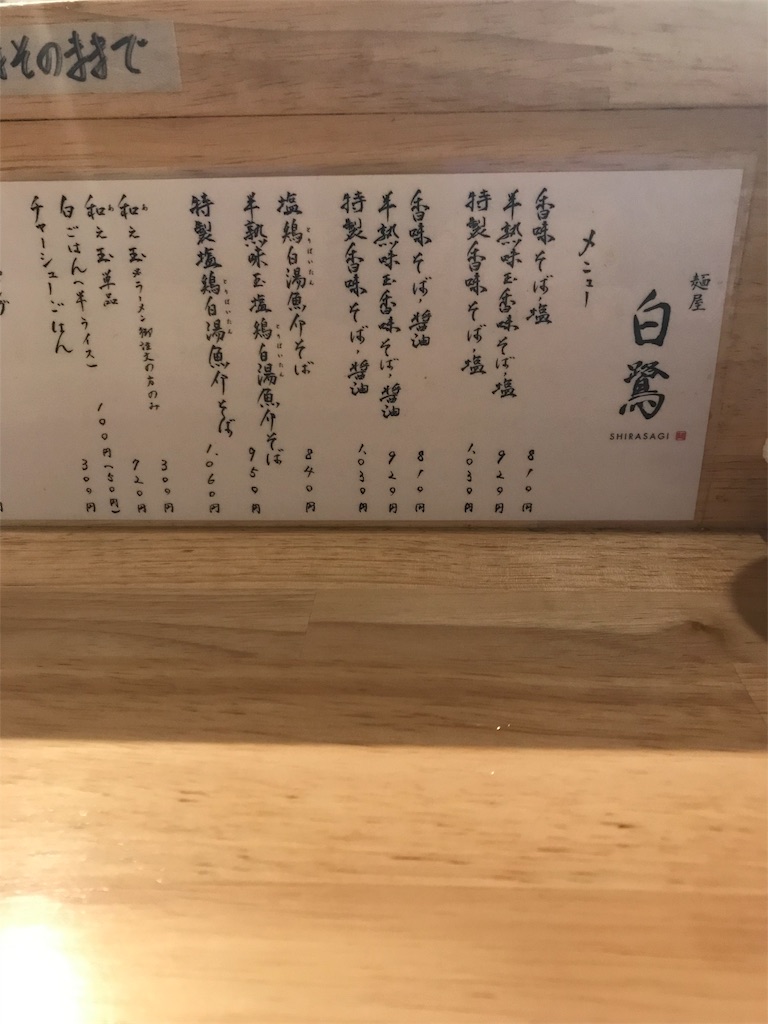 そのままで
麺屋
白鷺
SHIRASAGI
メニュー
香味そば・塩 810円
半熟味玉香味そば・塩 920円
特製香味そば・塩 1,030円
香味そば・醤油 810円
半熟味玉香味そば・醤油 920円
特製香味そば・醤油 1,030円
塩鶏白湯魚介そば 840円
半熟味玉塩鶏白湯魚介そば 950円
特製塩鶏白湯魚介そば 1,060円
和え玉 ※ラーメン御注文の方のみ 300円
和え玉単品 720円
白ごはん(半ライス) 100円(50円)
チャーシューごはん 300円